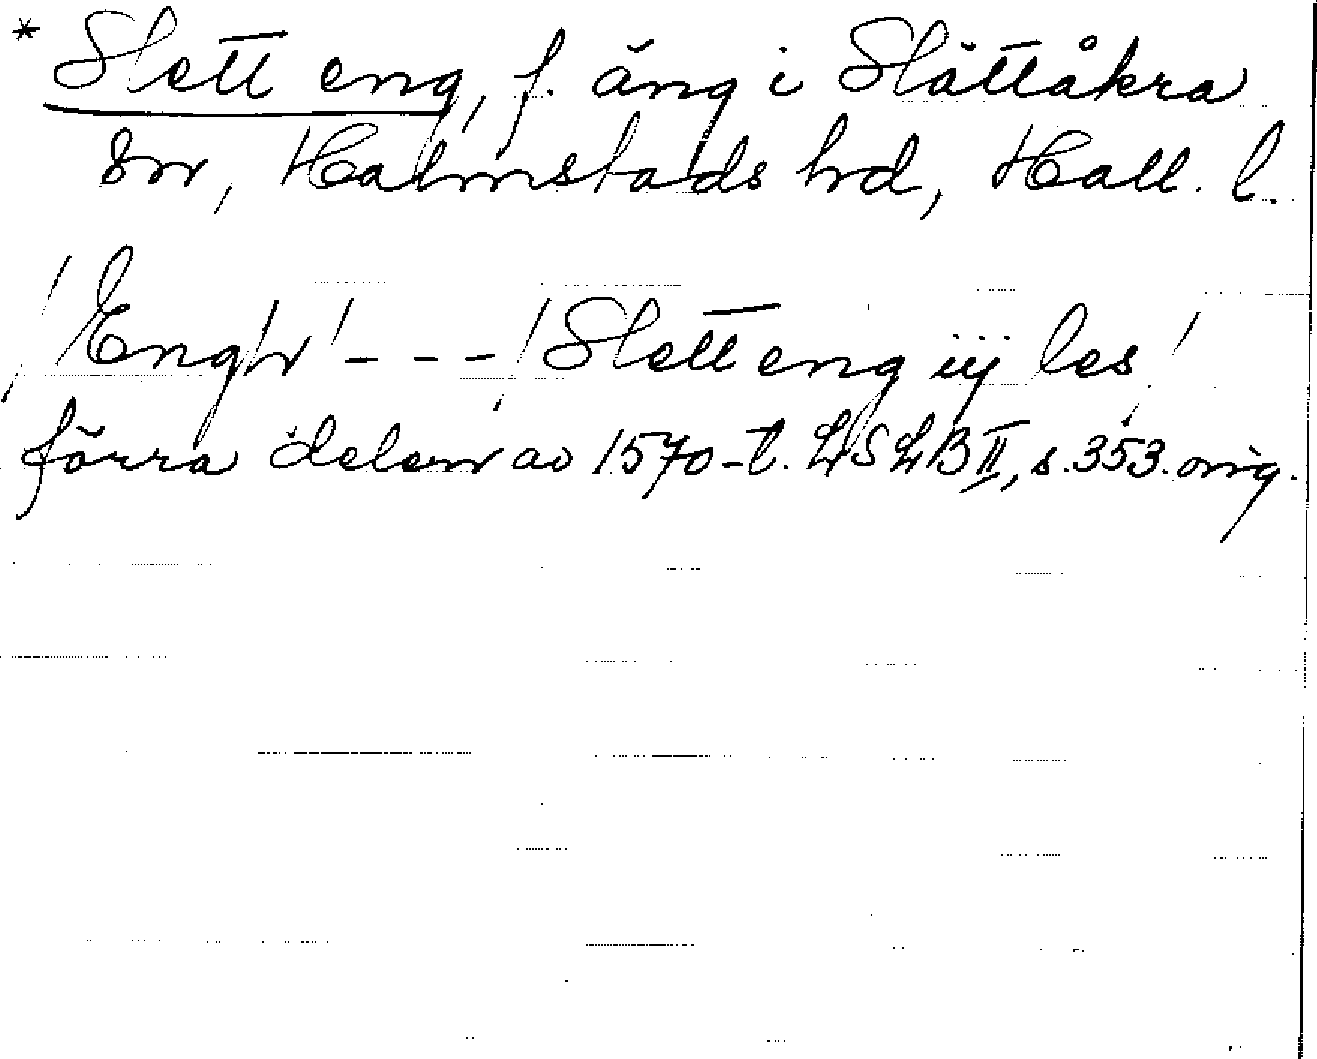 * Slett eng, f. äng i Slättåkra
sn, Halmstads hd, Hall. l.
/Engh/ - - - /Slett eng iij les/
förra delen av 1570-t. LSLB II, s. 353. orig.